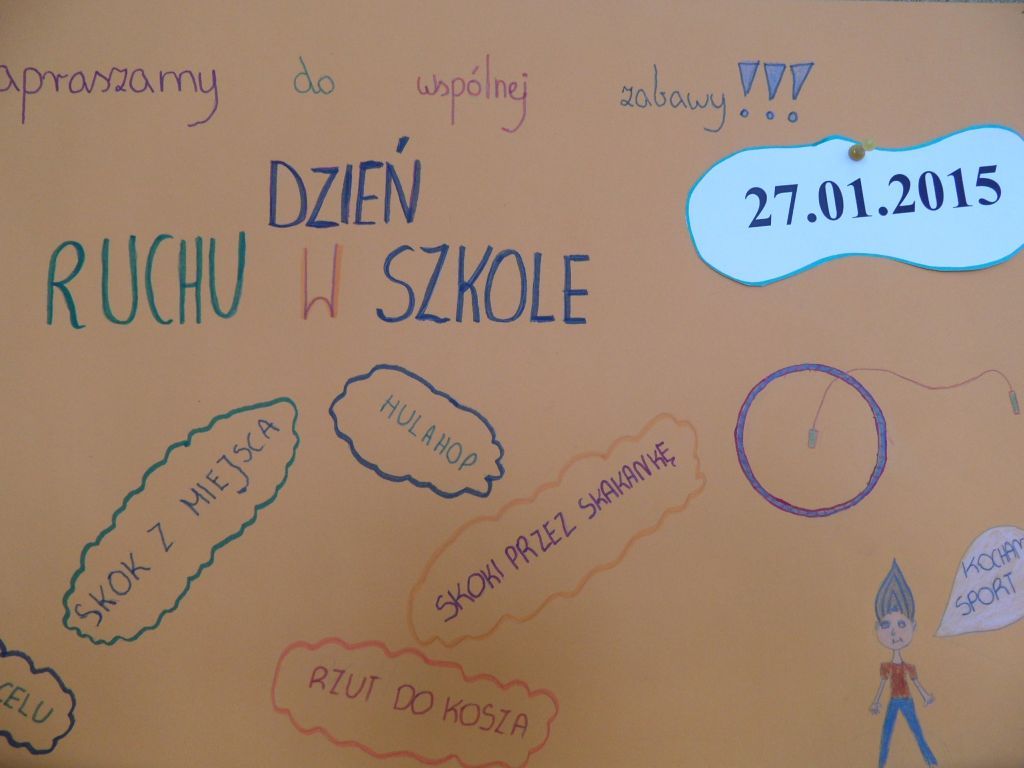 apraszamy do wspólnej zabawy!!!
27.01.2015
DZIEŃ
RUCHU W SZKOLE
HULAHOP
SKOK Z MIEJSCA
SKOKI PRZEZ SKAKANKĘ
KOCHAM
SPORT
RZUT DO KOSZA
CELU